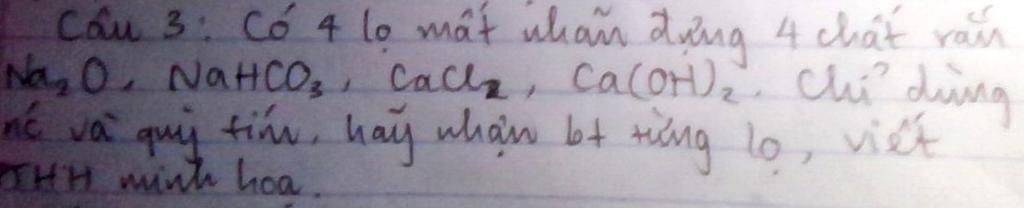 Câu 3: Có 4 lọ mất nhãn đựng 4 chất rắn
Na₂O, NaHCO₃, CaCl₂, Ca(OH)₂. Chỉ dùng
nc và quỳ tím, hãy nhận bt từng lọ, viết
PTHH minh hoạ.